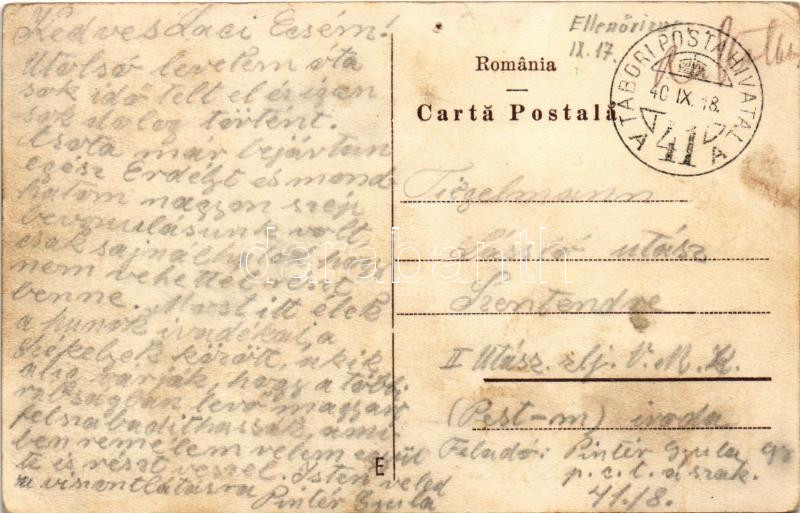 Kedves Laci Ecsém!
Utolsó levelem óta
sok idő telt el és igen
sok dolog történt.
már bejártuk
egész Erdélyt és mond
hatom nagyon szép
bevonulásunk volt
csak sajnálhatod hogy
nem vehettél részt
benne. Most itt élek
a hunok ivadékai, a
székelyek között, a kik
várják, hogy a többi
rabságban levő magyart
felszabadíthassák, ami
ben remélem velem együt
te is részt veszel. Isten veled
a viszontlátásra
Pintér Gyula
E
Ellenőrizve
IX. 17.
România
Cartă Postală
TÁBORI POSTAHIVATAL
40 IX. 18.
A 41 A
Tiegelmann
László utász
Szentendre
II Utász. zlj. V. M. K.
(Pest-m) iroda
Feladó: Pintér Gyula
p. c. t. ászak.
41/8.
darabanth